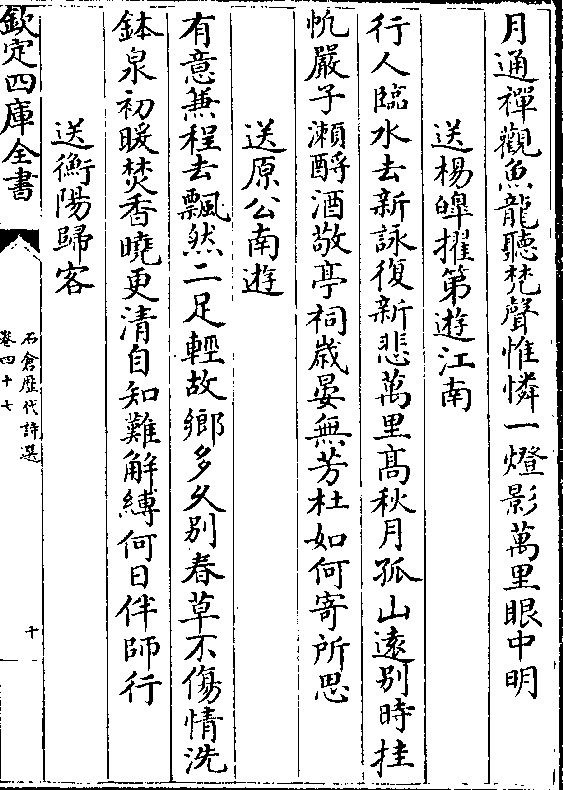 月通禪觀魚龍聽梵聲惟憐一燈影萬里眼中明
送楊皡擢第遊江南
行人臨水去新詠復新悲萬里髙秋月孤山逺别時挂
帆嚴子瀬酹酒敬亭祠歳晏無芳杜如何寄所思
送原公南遊
有意兼程去飄然二足輕故鄉多久别春草不傷情洗
鉢泉初暖焚香曉更清自知難解縛何日伴師行
送衡陽歸客
欽定四庫全書
石倉歴代詩選
卷四十七
十